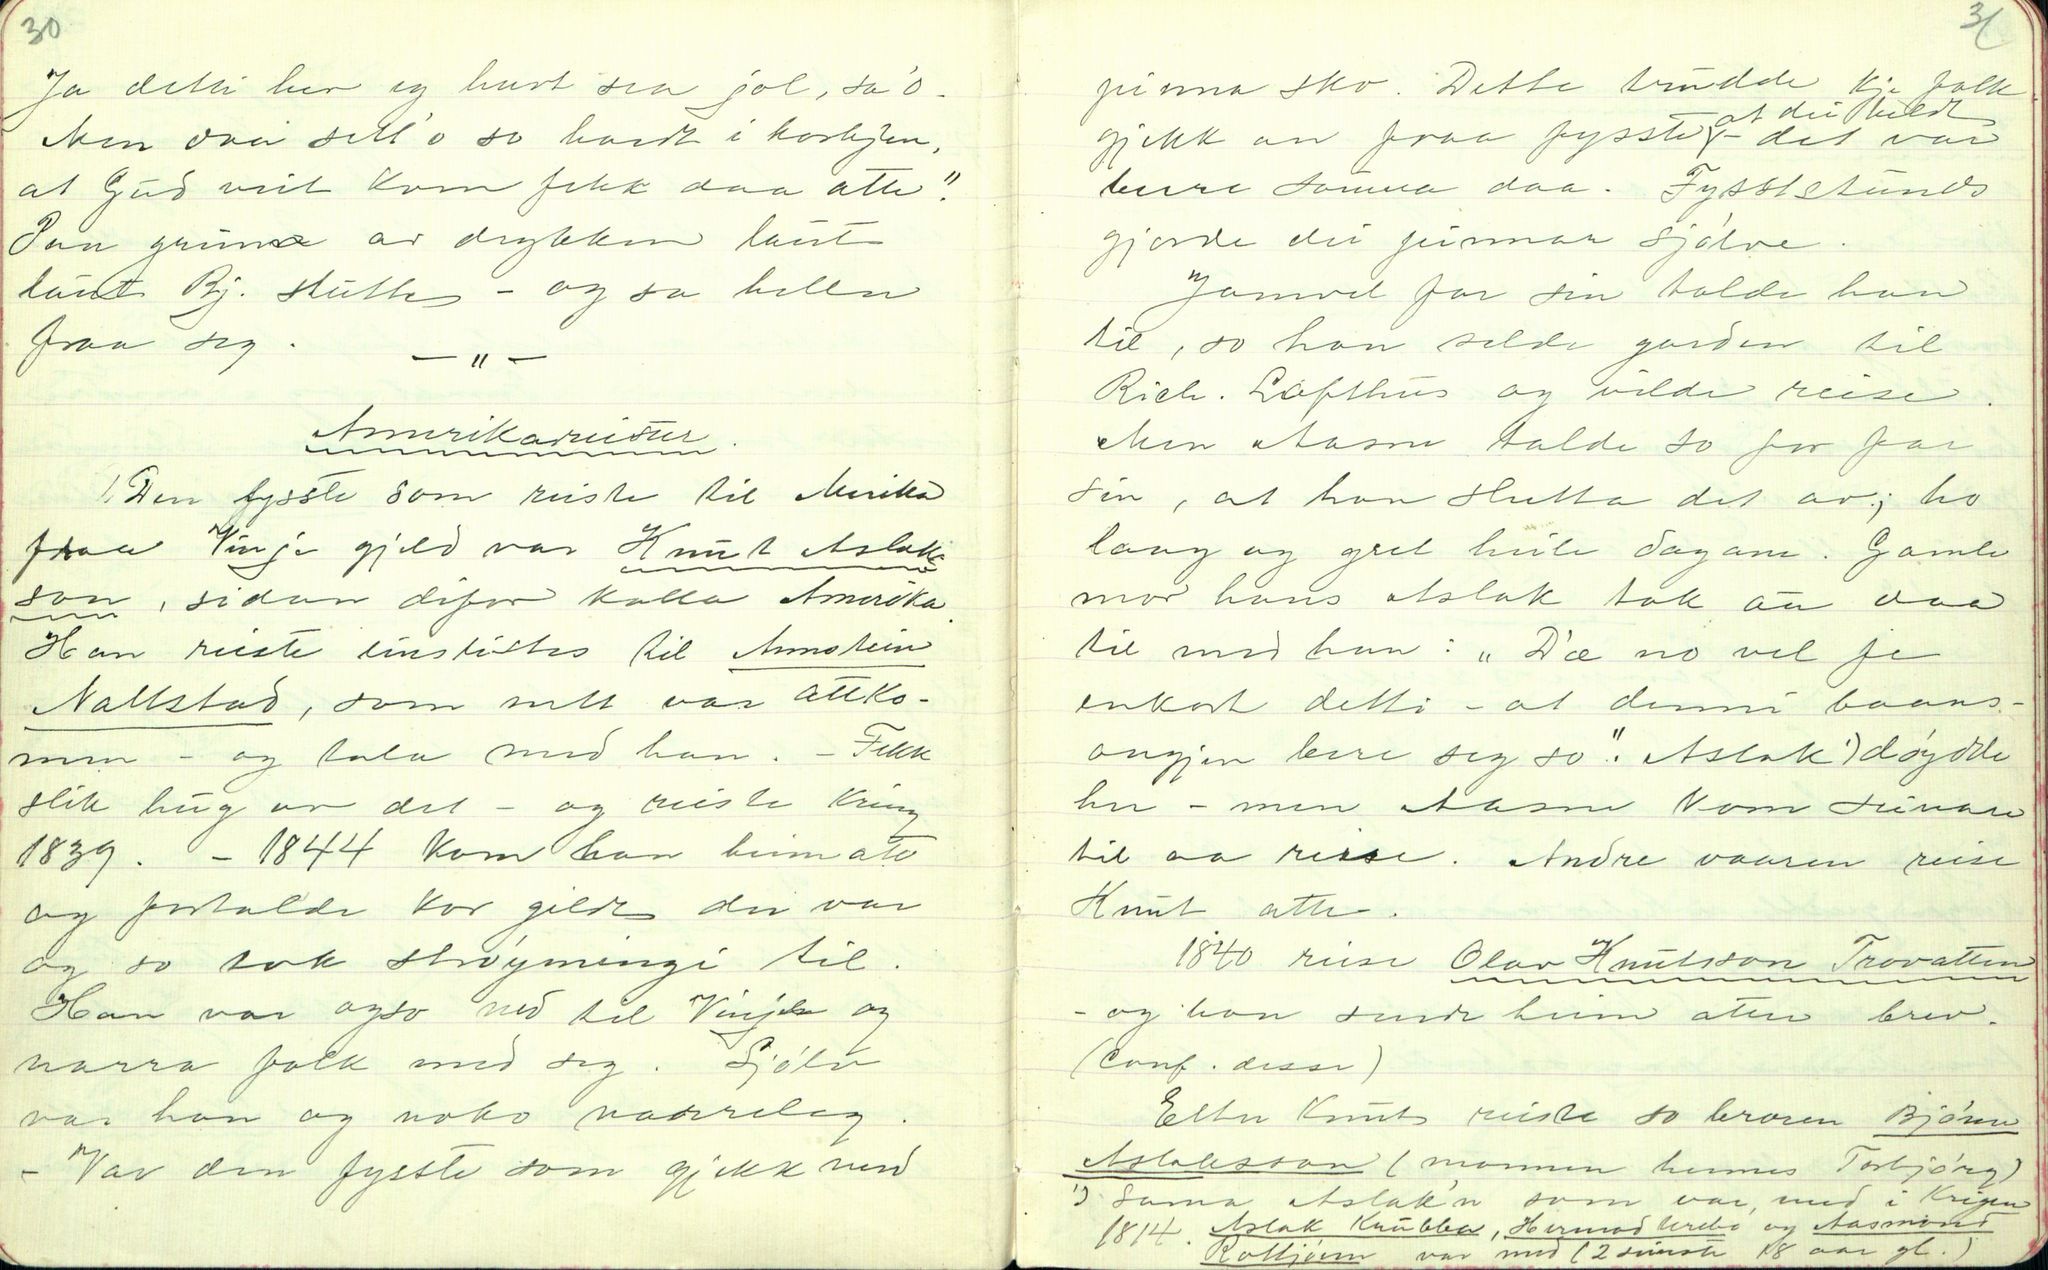 30
Ja detti her eg høyrt sea jol, sa'o.
Men daa sett'o so hardt i korkjen,
at Gud veit kom fekk daa atte".
Paa grunn av drykken laut
laut Bj. slutte - og sa hella
fraa seg.
— " —
Amerikareiser.
1. Den fysste som reiste til Merika
fraa Vinje gjeld var Knut Aslak-
son, sidan difor kalla Amerika.
Han reiste til Annstein
Nattstad, som nett var attko-
men - og tala med han. - Fekk
slik hug av det - og reiste kring
1839. - 1844 kom han heimatt
og fortalde kor gildt dei var
og so tok strøymingi til.
Han var ogso ned til Vinje og
narra folk med seg. Sjølv
var han og noko narreleg.
- Var den fysste som gjekk med
31
pinna sko. Dette trudde kje folk
at dei heldt
gjekk an fraa fysste - det var
berre sauma daa. Fysstundes
gjorde dei pinnar sjølve.
Jamvel far sin talde han
til, so han selde garden til
Rich. Lofthus og vilde reise.
Men Aasne talde so for far
sin, at han slutta det av; ho
laag og gret heile dagane. Gamle
mor hans Aslak tok au daa
til med han: "D'æ no vel fe
enkort detti - at denni baans-
ongjen bere seg so". Aslak 1) døydde
her - men Aasne kom seinare
til aa reise. Andre vaaren reise
Knut atte.
1840 reise Olav Knutsson Trovatten
- og han sende heim atten brev.
(Conf. desse)
Etter Knut reiste so broren Bjønn
Aslaksson (mannen hennes Torbjørg)
1) Sama Aslak'n som var med i Krigen
1814. Aslak Knubba, Hermod og Aasmund
Rottjønn var med (2 seinste 18 aar gl.)